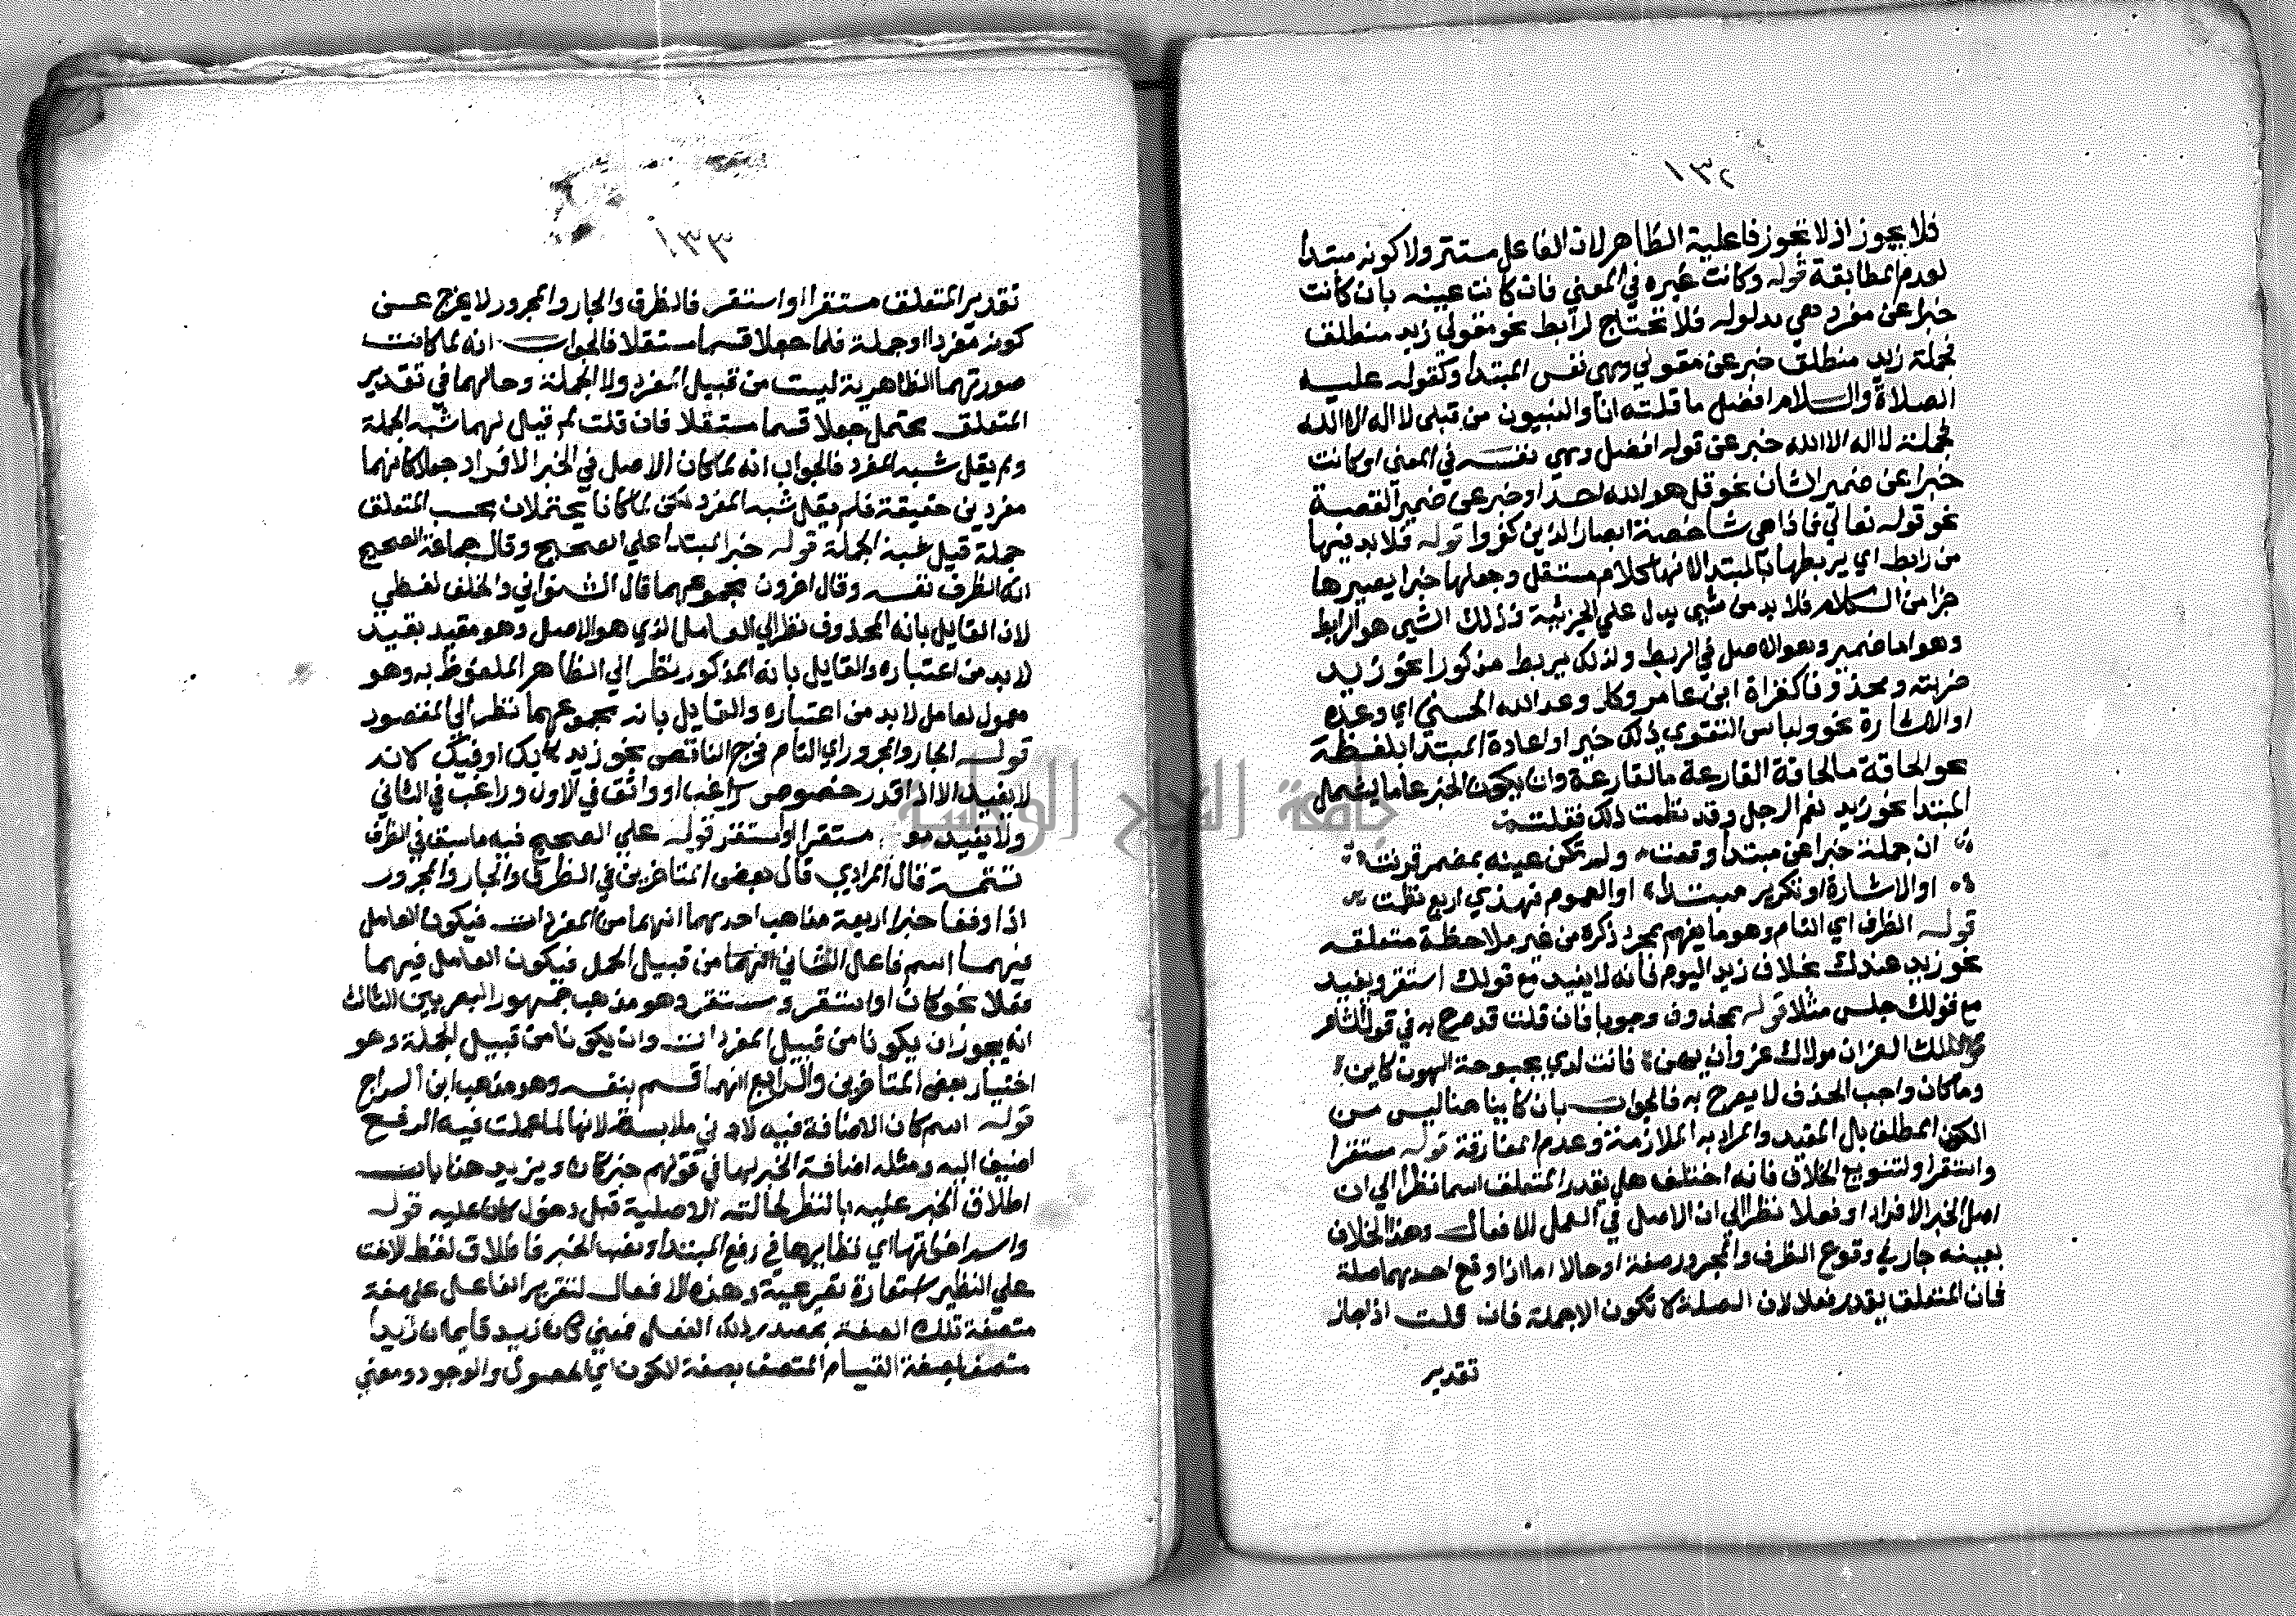 ١٣٢
فلا يجوز اذ لا تجوز فاعلية الظاهر لان الفاعل مستتر ولا كونه مبتدا
لعدم المطابقة قوله وكانت غيره في المعني فان كانت عينه بان كانت
خبرا عن مفرد هي مدلوله فلا تحتاج لرابط نحو مقولي زيد منطلق
فجملة زيد منطلق خبر عن مقولي وهي نفس المبتدا وكقوله عليه
الصلاة والسلام افضل ما قلته انا والنبيون من قبلي لا اله الا الله
فجملة لا اله الا الله خبر عن قوله افضل وهي نفسه في المعني او كانت
خبرا عن ضمير الشان نحو قل هو الله احد او خبر عن ضمير القصة
نحو قوله تعالي فاذا هي شاخصة ابصار الذين كفروا قوله فلا بد فيها
من رابط اي يربطها بالمبتدا لانها كلام مستقل وجعلها خبرا يصيرها
جزا من الكلام فلا بد من شيى يدل علي الجزئية وذلك الشيى هو الرابط
وهو اما ضمير وهو الاصل في الربط ولذلك يربط مذكورا نحو زيد
ضربته ومحذوفا كقراة ابن عامر وكل وعد الله الحسني اي وعده
او الاشارة نحو ولباس التقوي ذلك خير او اعادة المبتدا بلفظه
نحو الحاقة ما الحاقة القارعة ما القارعة وان يكون الخبر عاما يشمل
المبتدا نحو زيد نعم الرجل وقد نظمت ذلك فقلت
ان جملة خبرا عن مبتدا وقعت ولم تكن عينه بمضمر قرنت
او الاشارة او تكرير مبتدا او العموم فهذي اربع نظمت
قوله الظرف اي التام وهو ما يفهم بمجرد ذكره من غير ملاحظة متعلقه
نحو زيد عندك بخلاف زيد اليوم فانه لا يفيد مع قولك استقر ويفيد
مع قولك جلس مثلا قوله بمحذوف وجوبا فان قلت قد صرح به في قول الشاعر
لك العز ان مولاك عز وأن يهن فانت لدي بحبوحة الهون كاين
وما كان واجب الحذف لا يصرح به فالجواب بان كاينا هنا ليس من
الكون المطلق بال المقيد والمراد به الملازمة وعدم المفارقة قوله مستقرا
واستقرا ولتنويع الخلاف فانه اختلف هل يقدر المتعلق اسما نظرا الي ان
اصل الخبر الافراد او فعلا نظرا الي ان الاصل في العمل للافعال وهذا الخلاف
بعينه جار في وقوع الظرف والمجرور صفة او حالا اما اذا وقع احدهما صلة
فان المتعلق يقدر فعلا لان الصلة لا تكون الا جملة فان قلت اذا جاز
تقدير
١٣٣
تقدير المتعلق مستقرا او استقر فالظرف والجار والمجرور لا يخرج عن
كونه مفردا او جملة فلما جعلا قسما مستقلا فالجواب انه لما كانت
صورتهما الظاهرية ليست من قبيل المفرد ولا الجملة وحالهما في تقدير
المتعلق يحتمل جعلا قسما مستقلا فان قلت لم قيل لهما شبه الجملة
ولم يقل شبه المفرد فالجواب انه لما كان الاصل في الخبر الافراد جعلا كانهما
مفردين حقيقة فلم يقل شبه المفرد لكن لما كانا يحتملان بحسب المتعلق
جملة قيل شبه الجملة قوله خبر المبتدا علي الصحيح وقال جماعة الصحيح
انه الظرف نفسه وقال اخرون مجموعهما قال الشنواني والخلف لفظي
لان القايل بانه المحذوف نظر الي العامل الذي هو الاصل وهو مقيد بقيد
لا بد من اعتباره والقايل بانه المذكور نظر الي الظاهر الملفوظ به وهو
معمول لعامل لا بد من اعتباره والقايل بانه مجموعهما نظر الي المقصود
قوله الجار والمجرور اي التام فخرج الناقص نحو زيد بك او فيك لانه
لا يفيد الا اذا قدر خصوص راغب او واثق في الاول وراغب في الثاني
ولا يفيد مع مستقر او استقر قوله علي الصحيح فيه ما سبق في الظرف
تتمة قال المرادي قال بعض المتاخرين في الظرف والجار والمجرور
اذا وقعا خبرا اربعة مذاهب احدهما انهما من المفردات فيكون العامل
فيهما اسم فاعل الثاني انهما من قبيل الجمل فيكون العامل فيهما
فعلا نحو كان او استقر ويستقر وهو مذهب جمهور البصريين الثالث
انه يجوز ان يكونا من قبيل المفردات وان يكونا من قبيل الجملة وهو
اختيار بعض المتاخرين والرابع انهما قسم بنفسه وهو مذهب ابن السراج
قوله اسم كان الاضافة فيه لادني ملابسة لانها لما عملت فيه الرفع
اضيف اليه ومثله اضافة الخبر لها في قولهم خبر كان ويزيد هنا بان
اطلاق الخبر عليه بالنظر لحالته الاصلية قبل دخول كان عليه قوله
واسم اخواتها اي نظايرها في رفع المبتدا ونصب الخبر فاطلاق لفظ الاخت
علي النظير استعارة تصريحية وهذه الافعال لتقرير الفاعل علي صفة
متصفة تلك الصفة بمصدر ذلك الفعل فمعني كان زيد قايما ان زيدا
متصف بصفة القيام المتصف بصفة الكون اي الحصول والوجود ومعني
جامعة النجاح الوطنية